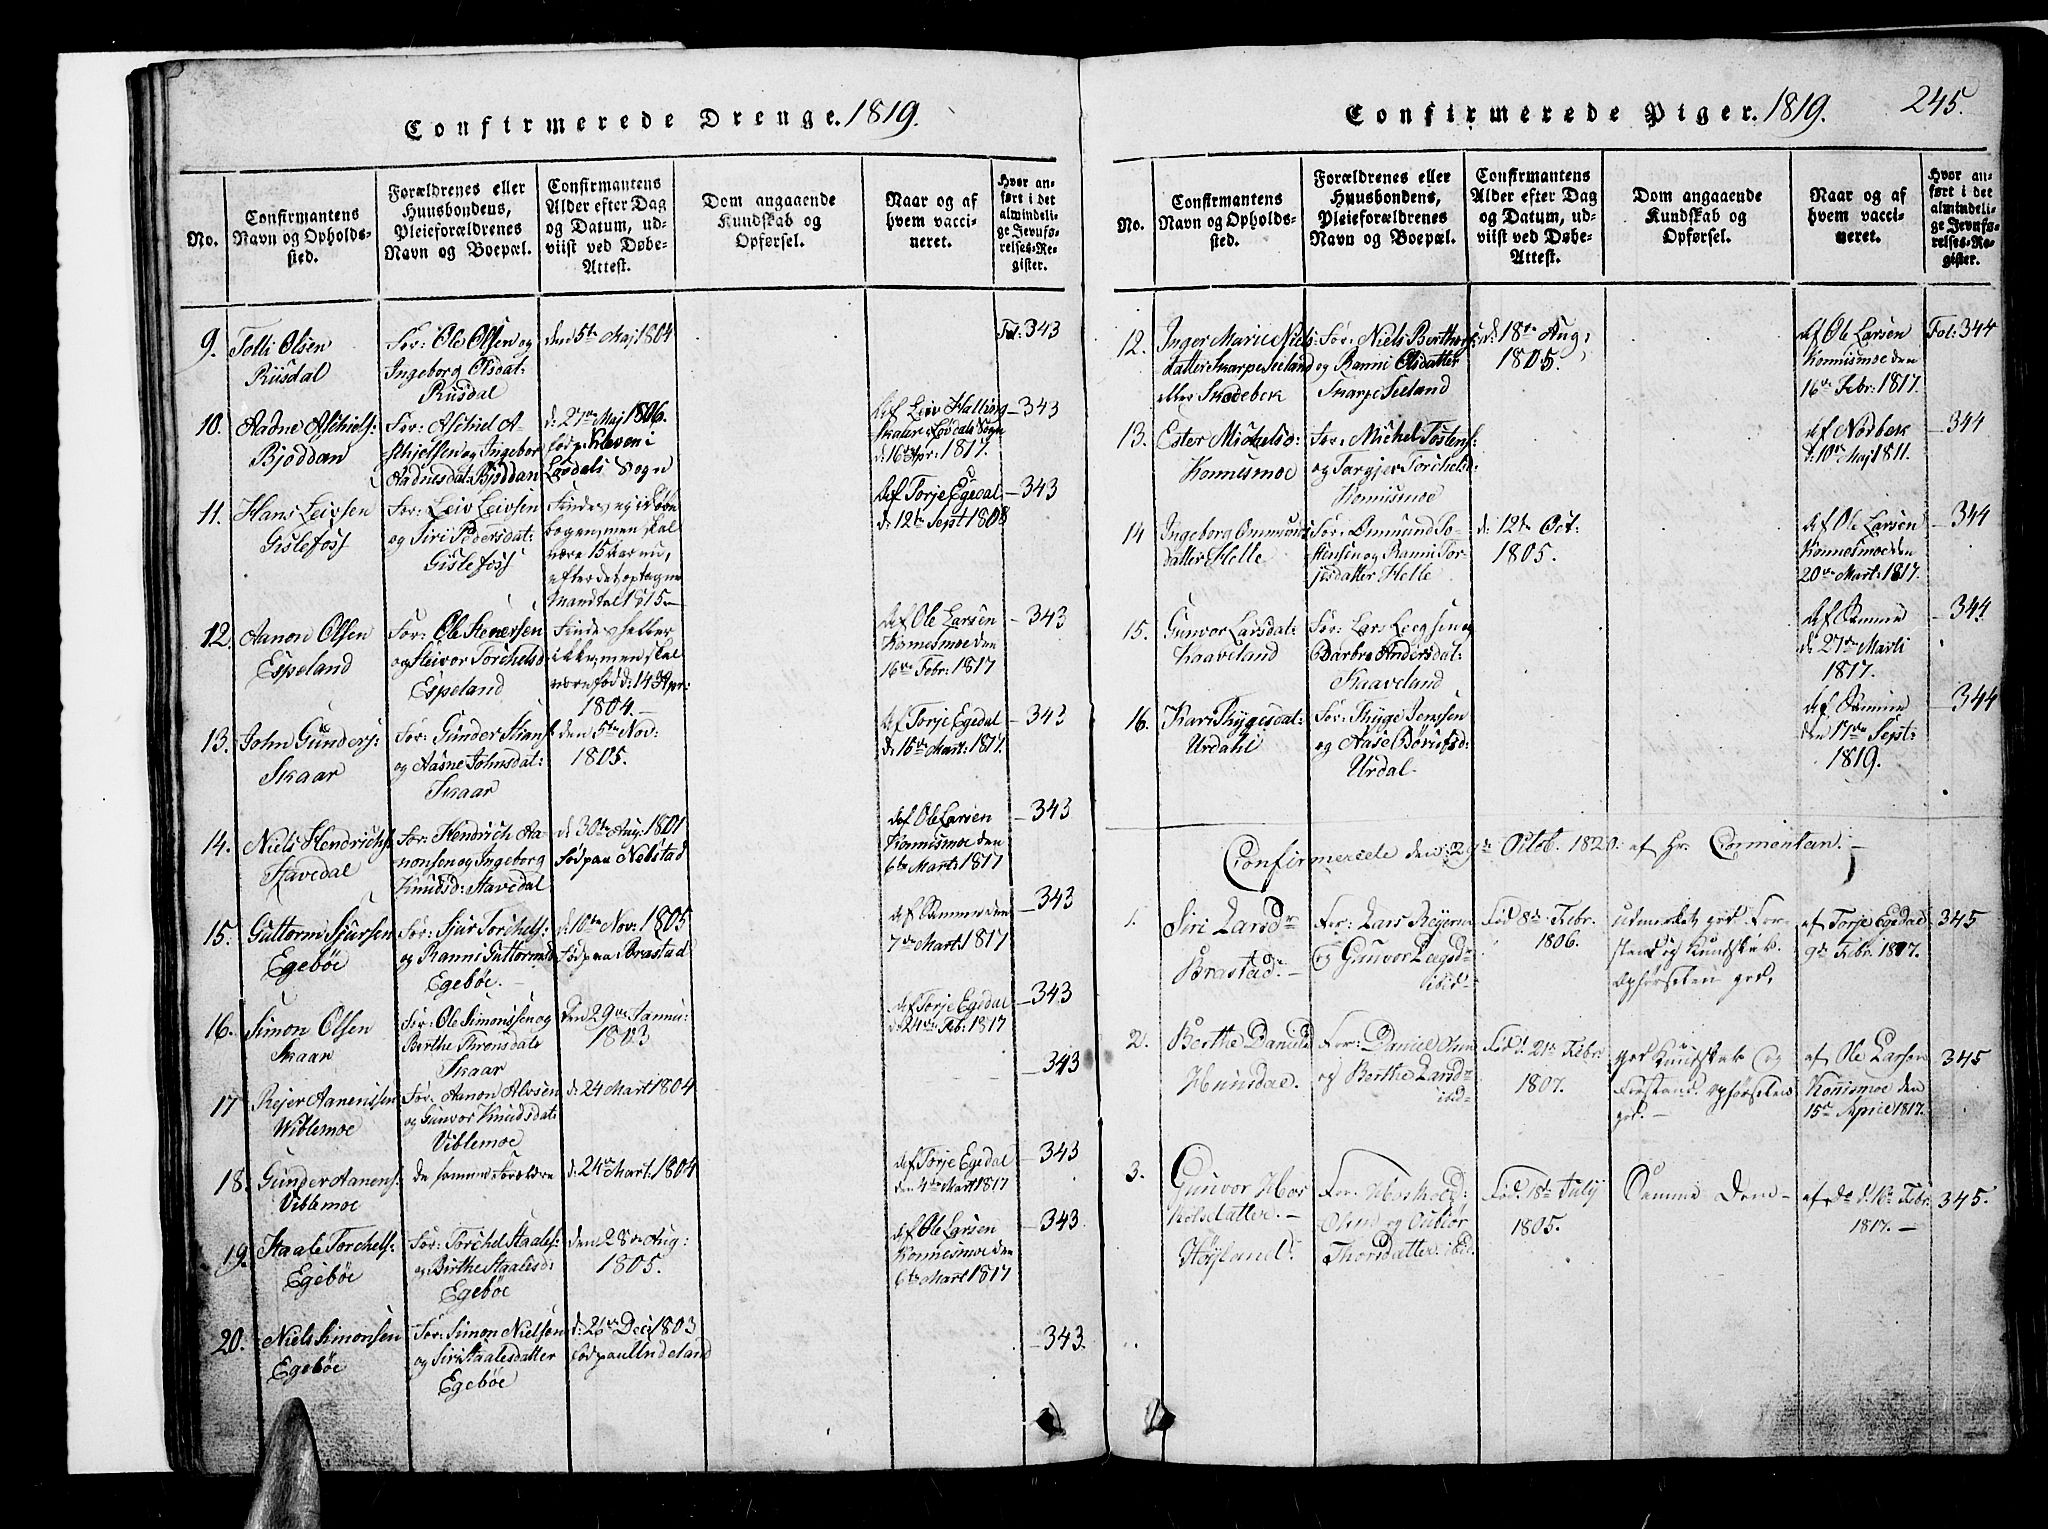 Confirmerede Drenge. 1819.
No.
Confirmantens
Navn og Opholds-
sted.
Forældrenes eller
Huusbondens,
Pleieforældrenes
Navn og Boepæl.
Confirmantens
Alder efter Dag
og Datum, ud-
viist ved Døbe-
Attest.
Dom angaaende
Kundskab og
Opførsel.
Naar og af
hvem vacci-
neret.
Hvor an-
ført i det
almindeli-
ge Jevnfø-
relses-Re-
gister.
9.
Tolli Olsen
Riisdal
For: Ole Olsen og
Ingeborg Olsdat:
Riisdal
den 5te Maj 1804
Fol: 343
10.
Aadne Aschiels:
Bjoddan
For: Aschiel A-
schjelsen og Ingebor
Aadnesdat: Bjoddan
d: 27de Maj 1806.
fød p: Eleven i
Løvdals Sogn
af Leiv Halling
Skaler i Løvdals Sogn
d: 16 Apr: 1817.
343
11.
Hans Leivsen
Gislefoss
For: Leiv Leivsen
og Siri Pedersdat:
Gislefoss
Findes ey i Døbe
bogen, men skal
være 15 Aar nu,
efter det optagne
Mandtal 1815
af Torje Egedal
d: 12te Sept 1808
343
12.
Aanon Olsen
Espeland
For: Ole Stenersen
og Steivor Torchelsd
Espeland
Findes heller
ikke, men skal
være fød d: 14 Apr:
1804.
af Ole Larsen
Konnesmoe den
16de Febr: 1817
343
13.
John Gunders:
Skaar
For: Gunder
og Aasne Johnsdat:
Skaar
den 5te Nov:
1805.
af Torje Egedal
d: 15de Mart: 1817.
343
14.
Niels Hendrichs:
Stavedal
For: Hendrich Aa-
nonsen og Ingeborg
Knudsd: Stavedal
d: 30te Aug: 1801
fød paa Nebstad
af Ole Larsen
Konnismoe den
6te Marts 1817
343
15.
Guttorm Sjursen
Egebøe
For: Sjur Torchels:
og Ranni Guttormsd
Egebøe.
d: 10te Nov: 1805
fød paa Brastad
af Samme den
7de Mart: 1817
343
16.
Simon Olsen
Skaar
For: Ole Simonssen og
Berthe
Skaar
den 29de Janu:
1803
af Torje Egedal
d: 24de Feb: 1817
343
17
Rejer Aanenssen
Wiblemoe
For: Aanon Alvsen
og Gunvor Knudsdat:
Viblemoe
d: 24 Mart 1804
343
18.
Gunder Aanens:
Viblemoe
de samme Forældre
d: 24de Mart: 1804
af Torje Egedal
den 4de Mart 1817
343
19.
Staale Torchels:
Egebøe
For: Torchel Staales:
og Birthe Staalesd:
Egebøe
den 28de Aug:
1805.
af Ole Larsen
Konnesmoe den
6te Mart 1817
343
20.
Niels Simonsen
Egebøe
For: Simon Nielsen
og Siri Staalesdatter
Egebøe
d: 26de Dec: 1803
fød paa Undeland
343.
Confirmerede Piger. 1819.
245.
No.
Confirmantens
Navn og Opholds-
sted.
Forældrenes eller
Huusbondens,
Pleieforældrenes
Navn og Boepæl.
Confirmantens
Alder efter Dag
og Datum, ud-
viist ved Døbe-
Attest.
Dom angaaende
Kundskab og
Opførsel.
Naar og af
hvem vacci-
neret.
Hvor an-
ført i det
almindeli-
ge Jevnfø-
relses-Re-
gister.
12.
Inger Marie Niels:
datter Skarpe Seeland
eller Skodebek
For: Niels Berthors:
og Ranni Olsdatter
Skarpe Seeland
d: 18de Aug:
1805.
af Ole Larsen
Konnismoe den
16de Febr: 1817.
Fol: 344
13.
Ester Michelsd:
Konnismoe
For: Michel Tostens:
og Targjer Torchelsd:
Konnismoe
af Nodbek
d: 10de Maj 1811.
344
14
Ingeborg Ommunds:
datter Helle
For: Ommund To-
stensen og Ranni Tor-
jesdatter Helle
d: 12te Oct:
1805.
af Ole Larsen
Konnesmoe den
20de Mart: 1817.
344
15.
Gunvor Larsdat:
Kaaveland
For: Lars Leegsen og
Barbro Andersdat:
Kaaveland
af Samme
d: 27de Marti
1817.
344.
16.
Kari Thygesdat:
Urdahl
For: Thyge Jenssen
og Aase Børufsd:
Urdal.
af Samme
den 17de Sept:
1819.
344
Confirmerede den 29de Octob. 1820 af Hr. Cormontan.
1.
Siri Larsdr
Brastad.
For: Lars Reiers
og Gunvor Leegsd
ibid
Fød 8de Febr.
1806.
udmerket god For-
stand og Kundskab.
Opførselen god.
af Torje Egedal
9de Febr. 1817.
345
2.
Berthe Daniels
Hunsdal.
For: Daniel Olsen
og Berthe Larsdr
ibid
Fød d. 21de Febr.
1807.
god Kundskab og
Forstand. Opførselen
god.
af Ole Larsen
Konnismoe den
15de April 1817.
345
3.
Gunvor Hor
kelsdatter.
Høyland.
For: Horkeld
Olsen og Gubiør
Thorsdatter ibid.
Fød. 18de July
1805.
Samme Dom
af Do d. 16de Febr.
1817.
345.